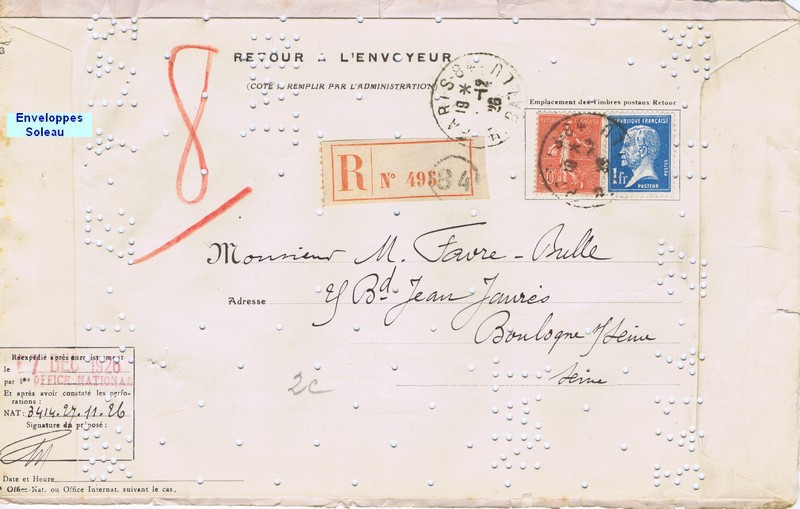 8
RETOUR A L'ENVOYEUR
(COTÉ À REMPLIR PAR L'ADMINISTRATION)
PARIS-84
Enveloppes
Soleau
Emplacement des Timbres postaux Retour
RÉPUBLIQUE FRANÇAISE
1fr
PASTEUR
POSTES
R No 495
84
Monsieur M. Favre-Bulle
Adresse
Bd Jean Jaurès
Boulogne s/Seine
Seine
2c
Réexpédié après enregistrement
le 7 DEC 1926
par l' OFFICE NATIONAL
Et après avoir constaté les perfo-
rations :
NAT: 3414.27.11.26
Signature du préposé :
Date et Heure
* Office Nat. ou Office Internat. suivant le cas.